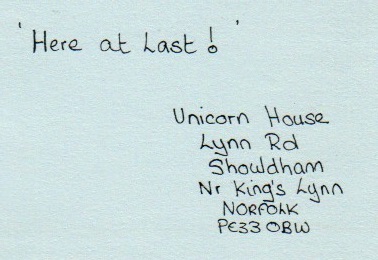 'Here at Last!'
Unicorn House
Lynn Rd
Showldham
Nr King's Lynn
NORFOLK
PE33 0BW